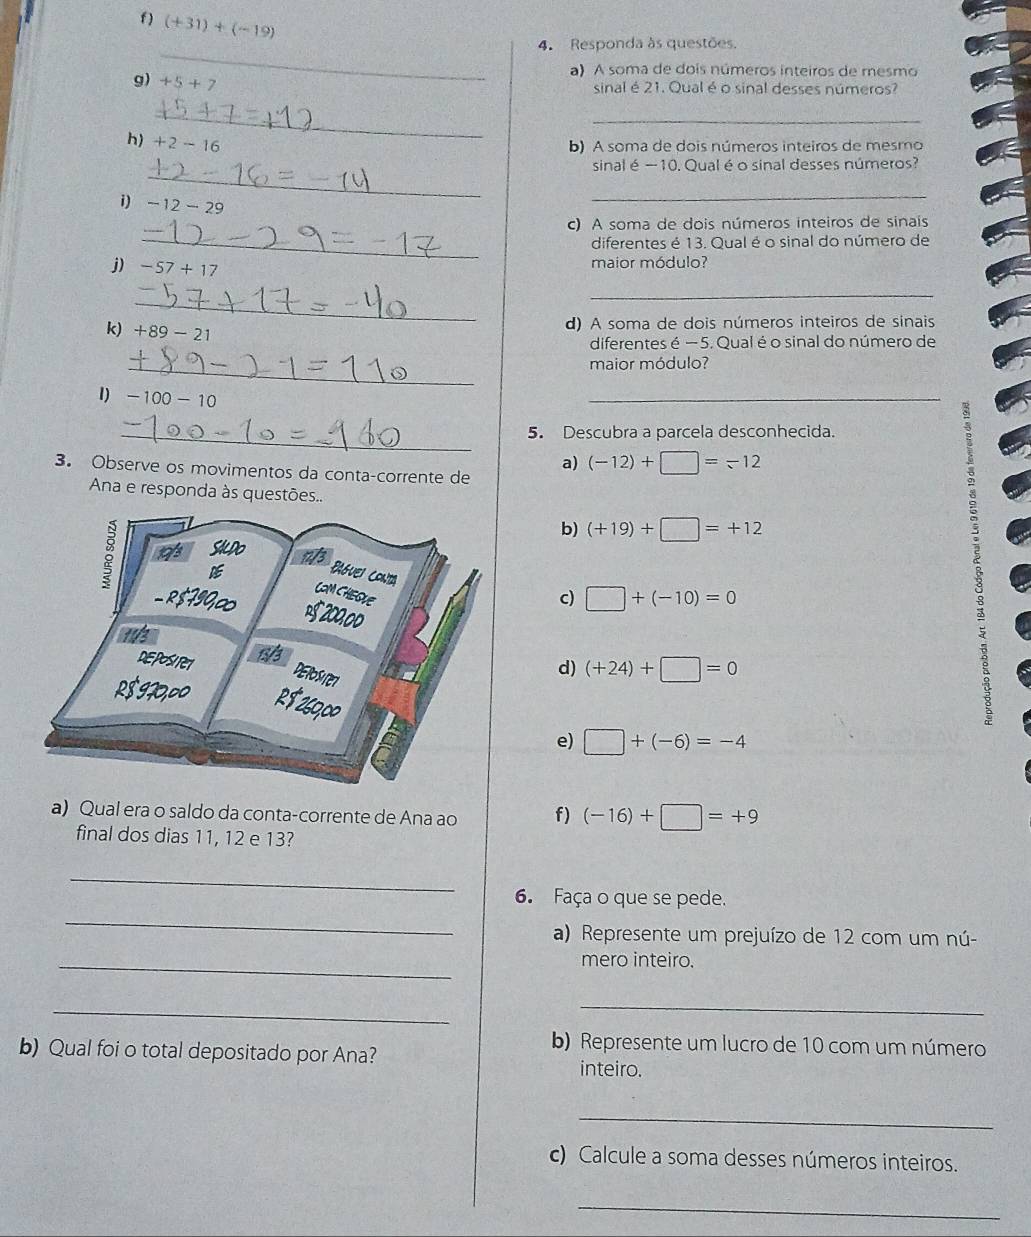 f) (+31) + (-19)
g) +5 + 7
+5 + 7 = +12
h) +2 - 16
+2 - 16 = -14
i) -12 - 29
-12 - 29 = -17
j) -57 + 17
-57 + 17 = -40
k) +89 - 21
+89 - 21 = 110
l) -100 - 10
-100 - 10 =
3. Observe os movimentos da conta-corrente de
Ana e responda às questões..
MAURO SOUZA
10/3 SALDO
DE
-R$790,00
11/3
DEPOSITEI
R$970,00
12/3 PAGUEI CONTA
COM CHEQUE
R$200,00
13/3
DEPOSITEI
R$260,00
a) Qual era o saldo da conta-corrente de Ana ao
final dos dias 11, 12 e 13?
b) Qual foi o total depositado por Ana?
4. Responda às questões.
a) A soma de dois números inteiros de mesmo
sinal é 21. Qual é o sinal desses números?
b) A soma de dois números inteiros de mesmo
sinal é -10. Qual é o sinal desses números?
c) A soma de dois números inteiros de sinais
diferentes é 13. Qual é o sinal do número de
maior módulo?
d) A soma de dois números inteiros de sinais
diferentes é -5. Qual é o sinal do número de
maior módulo?
5. Descubra a parcela desconhecida.
a) (-12) + □ = -12
b) (+19) + □ = +12
c) □ + (-10) = 0
d) (+24) + □ = 0
e) □ + (-6) = -4
f) (-16) + □ = +9
6. Faça o que se pede.
a) Represente um prejuízo de 12 com um nú-
mero inteiro.
b) Represente um lucro de 10 com um número
inteiro.
c) Calcule a soma desses números inteiros.
Reprodução proibida. Art. 184 do Código Penal e Lei 9.610 de 19 de fevereiro de 1998.